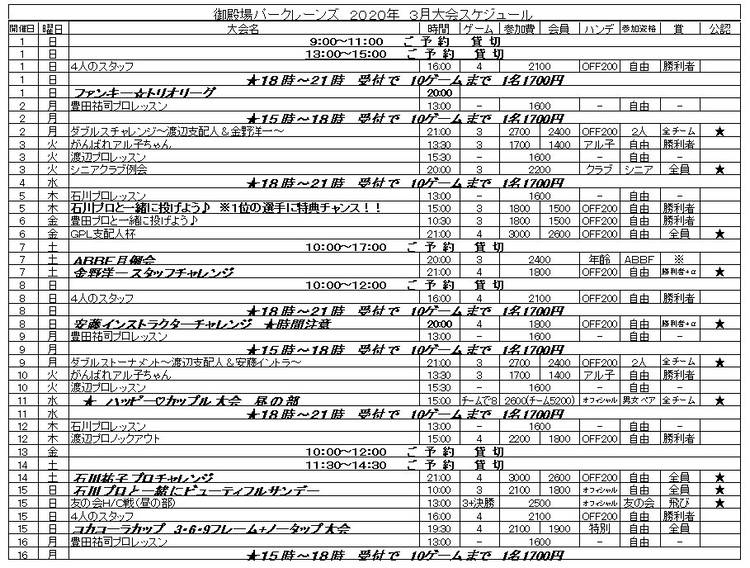 御殿場パークレーンズ 2020年 3月大会スケジュール
開催日 曜日 大会名 時間 ゲーム 参加費 会員 ハンデ 参加資格 賞 公認
1 日 9:00～11:00 ご 予 約 貸 切
1 日 13:00～15:00 ご 予 約 貸 切
1 日 4人のスタッフ 16:00 4 2100 OFF200 自由 勝利者
1 日 ★18時～21時 受付で 10ゲームまで 1名1700円
1 日 ファンキー☆トリオリーグ 20:00
2 月 豊田祐司プロレッスン 13:00 － 1600 － 自由 －
2 月 ★15時～18時 受付で 10ゲームまで 1名1700円
2 月 ダブルスチャレンジ～渡辺支配人＆金野洋一～ 21:00 3 2700 2400 OFF200 2人 全チーム ★
3 火 がんばれアル子ちゃん 13:30 3 1700 1400 アル子 自由 勝利者
3 火 渡辺プロレッスン 15:30 － 1600 － 自由 －
3 火 シニアクラブ例会 20:00 3 2200 クラブ シニア 全員 ★
4 水 ★18時～21時 受付で 10ゲームまで 1名1700円
5 木 石川プロレッスン 13:00 － 1600 － 自由 －
5 木 石川プロと一緒に投げよう♪ ※1位の選手に特典チャンス！！ 15:00 3 1800 1500 OFF200 自由 勝利者
6 金 豊田プロと一緒に投げよう♪ 10:30 3 1800 1500 OFF200 自由 勝利者
6 金 GPL支配人杯 21:00 4 3000 2600 OFF200 自由 全員 ★
7 土 10:00～17:00 ご 予 約 貸 切
7 土 ABBF月例会 20:00 3 2400 年齢 ABBF ※
7 土 金野洋一スタッフチャレンジ 21:00 4 1800 OFF200 自由 勝利者+α ★
8 日 10:00～12:00 ご 予 約 貸 切
8 日 4人のスタッフ 16:00 4 2100 OFF200 自由 勝利者
8 日 ★18時～21時 受付で 10ゲームまで 1名1700円
8 日 安藤インストラクターチャレンジ ★時間注意 20:00 4 1800 OFF200 自由 勝利者+α ★
9 月 豊田祐司プロレッスン 13:00 － 1600 － 自由 －
9 月 ★15時～18時 受付で 10ゲームまで 1名1700円
9 月 ダブルストーナメント～渡辺支配人＆安藤イントラ～ 21:00 3 2700 2400 OFF200 2人 全チーム ★
10 火 がんばれアル子ちゃん 13:30 3 1700 1400 アル子 自由 勝利者
10 火 渡辺プロレッスン 15:30 － 1600 － 自由 －
11 水 ★ ハッピー♡カップル大会 昼の部 15:00 チームで8 2600(チーム5200) オフィシャル 男女ペア 全チーム ★
11 水 ★18時～21時 受付で 10ゲームまで 1名1700円
12 木 石川プロレッスン 13:00 － 1600 － 自由 －
12 木 渡辺プロノックアウト 15:00 4 2200 1800 OFF200 自由 勝利者
13 金 10:00～12:00 ご 予 約 貸 切
14 土 11:30～14:30 ご 予 約 貸 切
14 土 石川祐子プロチャレンジ 21:00 4 3000 2600 OFF200 自由 全員 ★
15 日 石川プロと一緒にビューティフルサンデー 10:00 3 2100 1800 オフィシャル 自由 全員 ★
15 日 友の会H/C戦(昼の部) 13:00 3+決勝 2500 オフィシャル 友の会 飛び ★
15 日 4人のスタッフ 16:00 4 2100 OFF200 自由 勝利者
15 日 コカコーラカップ 3・6・9フレーム+ノータップ大会 19:30 4 2100 1900 特別 自由 全員
16 月 豊田祐司プロレッスン 13:00 － 1600 － 自由 －
16 月 ★15時～18時 受付で 10ゲームまで 1名1700円